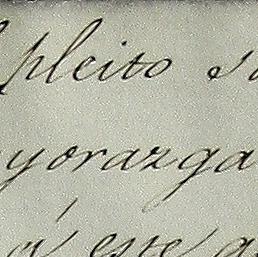 pleito s
yorazga
á este a